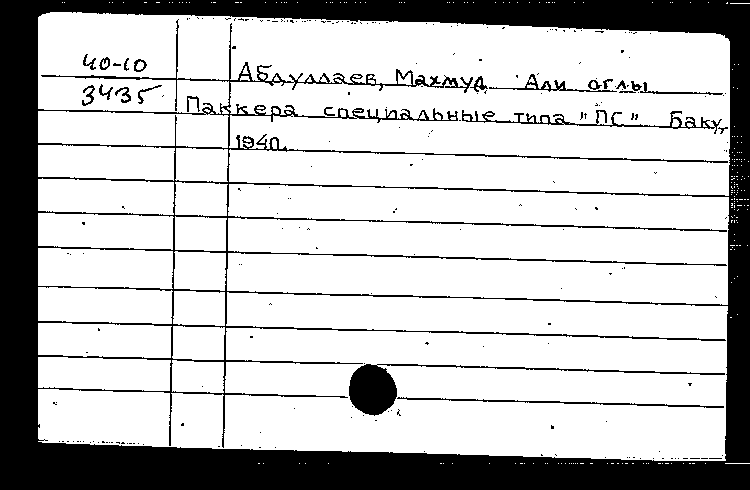 40-10
3435
Абдуллаев, Махмуд Али оглы
Паккера специальные типа "ПС" Баку,
1940.